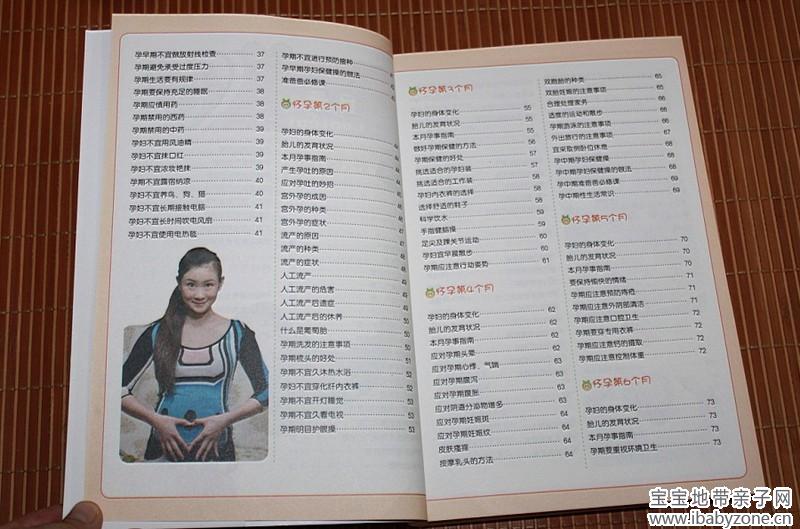 孕早期不宜做放射线检查 37
孕期避免承受过度压力 37
孕期生活要有规律 37
孕期要保持充足的睡眠 38
孕期应慎用药 38
孕期禁用的西药 38
孕期禁用的中药 39
孕妇不宜用风油精 39
孕妇不宜抹口红 39
孕妇不宜浓妆艳抹 39
孕期不宜露宿纳凉 40
孕妇不宜养鸟、狗、猫 40
孕妇不宜长期接触电脑 41
孕妇不宜长时间吹电风扇 41
孕妇不宜使用电热毯 41
孕期不宜进行预防接种
孕早期孕妇保健操的做法
准爸爸必修课
怀孕第2个月
孕妇的身体变化
胎儿的发育状况
本月孕事指南
产生孕吐的原因
应对孕吐的妙招
宫外孕的成因
宫外孕的种类
宫外孕的症状
流产的原因
流产的种类
流产的症状
人工流产
人工流产的危害
人工流产后遗症
人工流产后的休养 50
什么是葡萄胎
孕期洗发的注意事项 50
孕期梳头的好处 51
孕期不宜久沐热水浴 52
孕妇不宜穿化纤内衣裤 52
孕期不宜开灯睡觉 53
孕期不宜久看电视 53
孕期明目护眼操 53
怀孕第3个月
孕妇的身体变化 55
胎儿的发育状况 55
本月孕事指南 55
做好孕期保健的方法 56
孕期保健的好处 57
挑选适合的孕妇装 57
挑选适合的工作装 58
孕妇内衣裤的选择 58
选择舒适的鞋子 58
科学饮水 59
手指健脑操 59
足尖及踝关节运动 60
孕妇宜早晨散步 60
孕期应注意行动姿势 61
怀孕第4个月
孕妇的身体变化 62
胎儿的发育状况 62
本月孕事指南 62
应对孕期头晕 62
应对孕期心悸、气喘 63
应对孕期腹泻 63
应对孕期腹胀 63
应对阴道分泌物增多 63
应对孕期妊娠斑 64
应对孕期妊娠纹 64
皮肤瘙痒 64
按摩乳头的方法 64
双胞胎的种类 65
双胎妊娠的注意事项 65
合理处理家务 65
适度的运动和散步 66
孕期游泳的注意事项 66
外出旅行的注意事项 67
宜采取侧卧位休息 68
孕中期孕妇保健操 68
孕中期孕妇保健操的做法 68
孕中期准爸爸必修课 69
孕中期性生活常识 69
怀孕第5个月
孕妇的身体变化 70
胎儿的发育状况 70
本月孕事指南 70
要保持愉快的情绪 71
孕期应注意预防痔疮 71
孕期应注意外阴部清洁 71
孕期应注意口腔卫生 72
孕期要穿专用衣裤 72
孕期应注意钙的摄取 72
孕期应注意控制体重 72
怀孕第6个月
孕妇的身体变化 73
胎儿的发育状况 73
本月孕事指南 73
孕期要重视环境卫生 73
宝宝地带亲子网
www.ibabyzone.cn